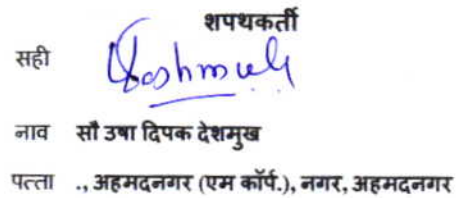 शपथकर्ती
सही
नाव सौ उषा दिपक देशमुख
पत्ता ., अहमदनगर (एम कॉर्प.), नगर, अहमदनगर